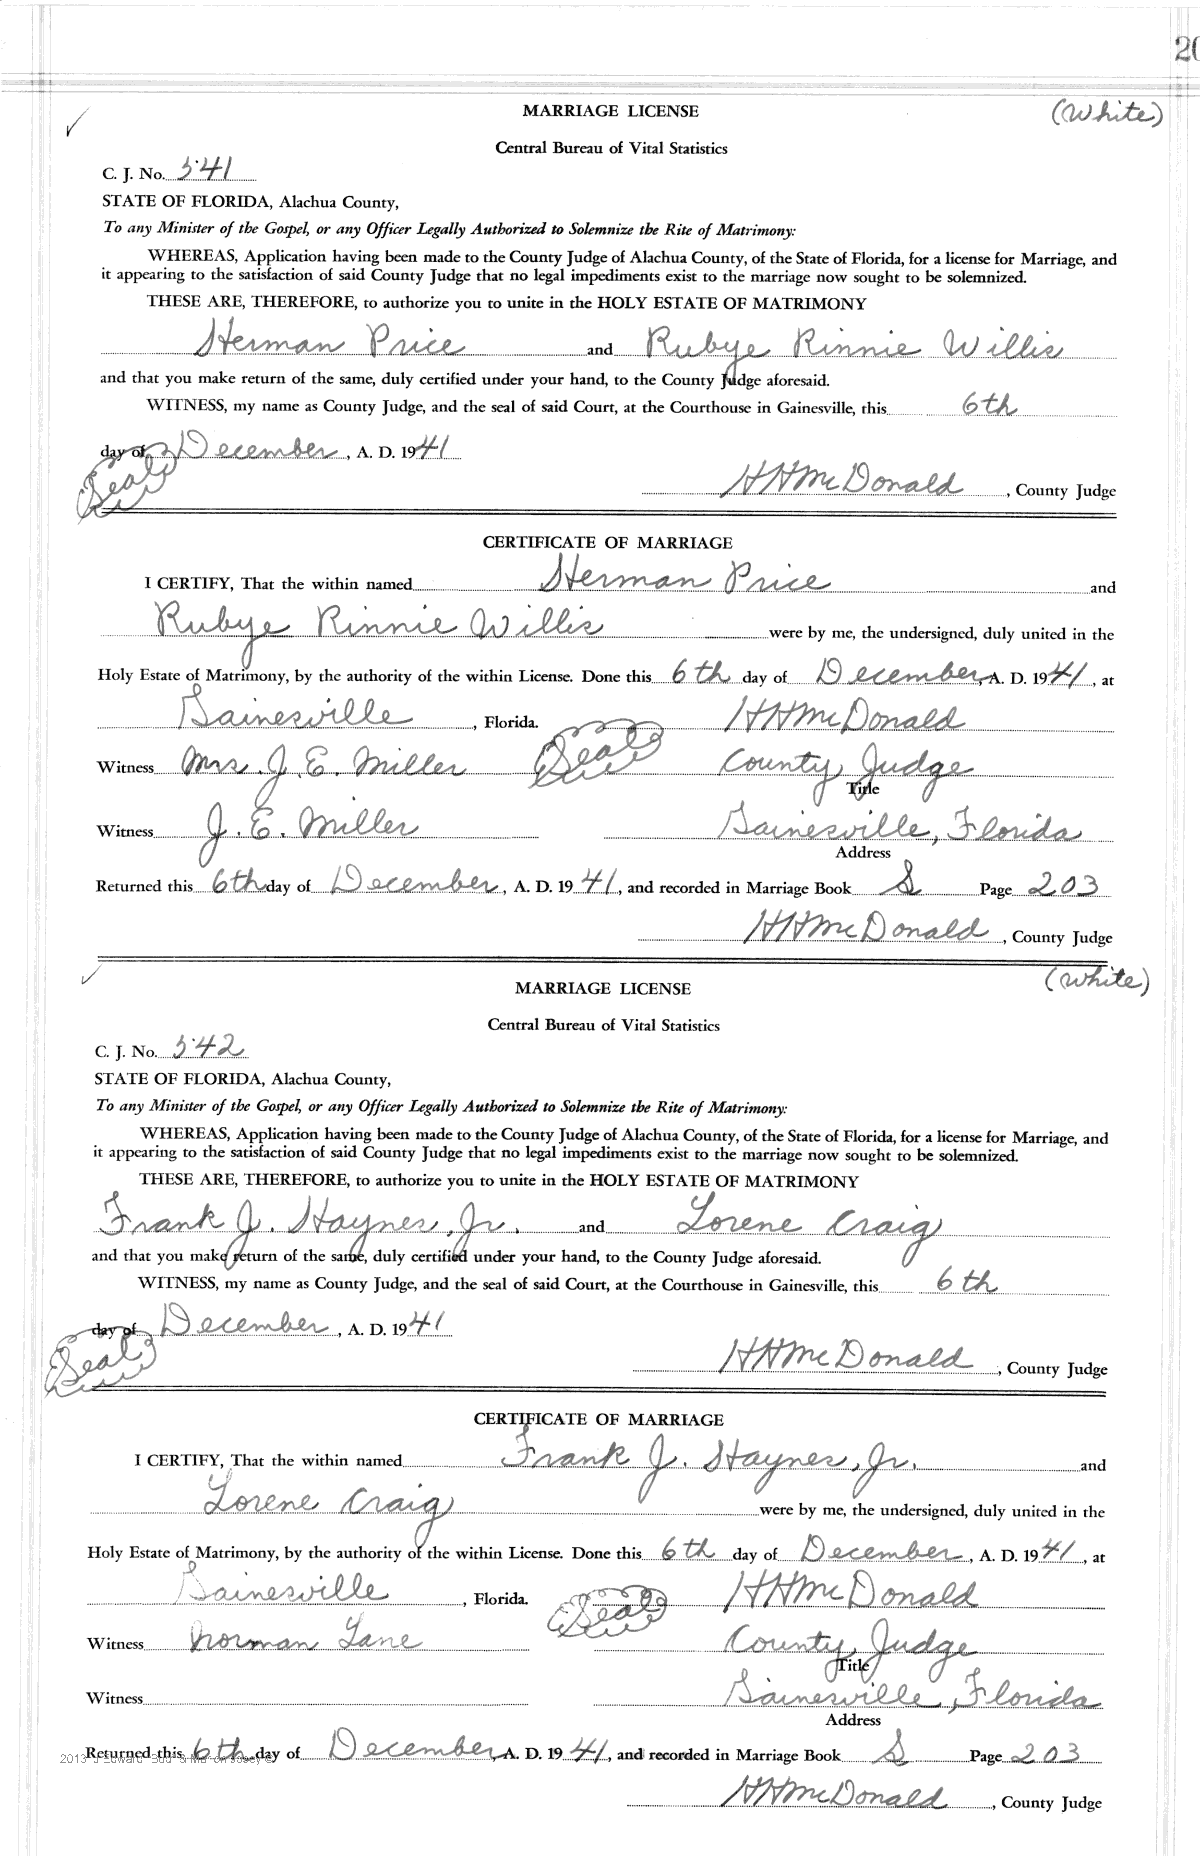 20
MARRIAGE LICENSE (White)
Central Bureau of Vital Statistics
C. J. No. 541
STATE OF FLORIDA, Alachua County,
To any Minister of the Gospel, or any Officer Legally Authorized to Solemnize the Rite of Matrimony:
WHEREAS, Application having been made to the County Judge of Alachua County, of the State of Florida, for a license for Marriage, and
it appearing to the satisfaction of said County Judge that no legal impediments exist to the marriage now sought to be solemnized.
THESE ARE, THEREFORE, to authorize you to unite in the HOLY ESTATE OF MATRIMONY
Herman Price and Rubye Rinnie Willis
and that you make return of the same, duly certified under your hand, to the County Judge aforesaid.
WITNESS, my name as County Judge, and the seal of said Court, at the Courthouse in Gainesville, this 6th
day of December, A. D. 1941
Seal
HHMcDonald, County Judge
CERTIFICATE OF MARRIAGE
I CERTIFY, That the within named Herman Price and
Rubye Rinnie Willis were by me, the undersigned, duly united in the
Holy Estate of Matrimony, by the authority of the within License. Done this 6th day of December, A. D. 1941, at
Gainesville, Florida. Seal HHMcDonald
Witness Mrs. J. E. Miller County Judge
Title
Witness J. E. Miller Gainesville, Florida
Address
Returned this 6th day of December, A. D. 1941, and recorded in Marriage Book S Page 203
HHMcDonald, County Judge
MARRIAGE LICENSE (White)
Central Bureau of Vital Statistics
C. J. No. 542
STATE OF FLORIDA, Alachua County,
To any Minister of the Gospel, or any Officer Legally Authorized to Solemnize the Rite of Matrimony:
WHEREAS, Application having been made to the County Judge of Alachua County, of the State of Florida, for a license for Marriage, and
it appearing to the satisfaction of said County Judge that no legal impediments exist to the marriage now sought to be solemnized.
THESE ARE, THEREFORE, to authorize you to unite in the HOLY ESTATE OF MATRIMONY
Frank J. Haynes, Jr. and Lorene Craig
and that you make return of the same, duly certified under your hand, to the County Judge aforesaid.
WITNESS, my name as County Judge, and the seal of said Court, at the Courthouse in Gainesville, this 6th
day of December, A. D. 1941
Seal
HHMcDonald, County Judge
CERTIFICATE OF MARRIAGE
I CERTIFY, That the within named Frank J. Haynes, Jr. and
Lorene Craig were by me, the undersigned, duly united in the
Holy Estate of Matrimony, by the authority of the within License. Done this 6th day of December, A. D. 1941, at
Gainesville, Florida. Seal HHMcDonald
Witness Norman Lane County Judge
Title
Witness Gainesville, Florida
Address
2013 Returned this 6th day of December, A. D. 1941, and recorded in Marriage Book S Page 203
HHMcDonald, County Judge